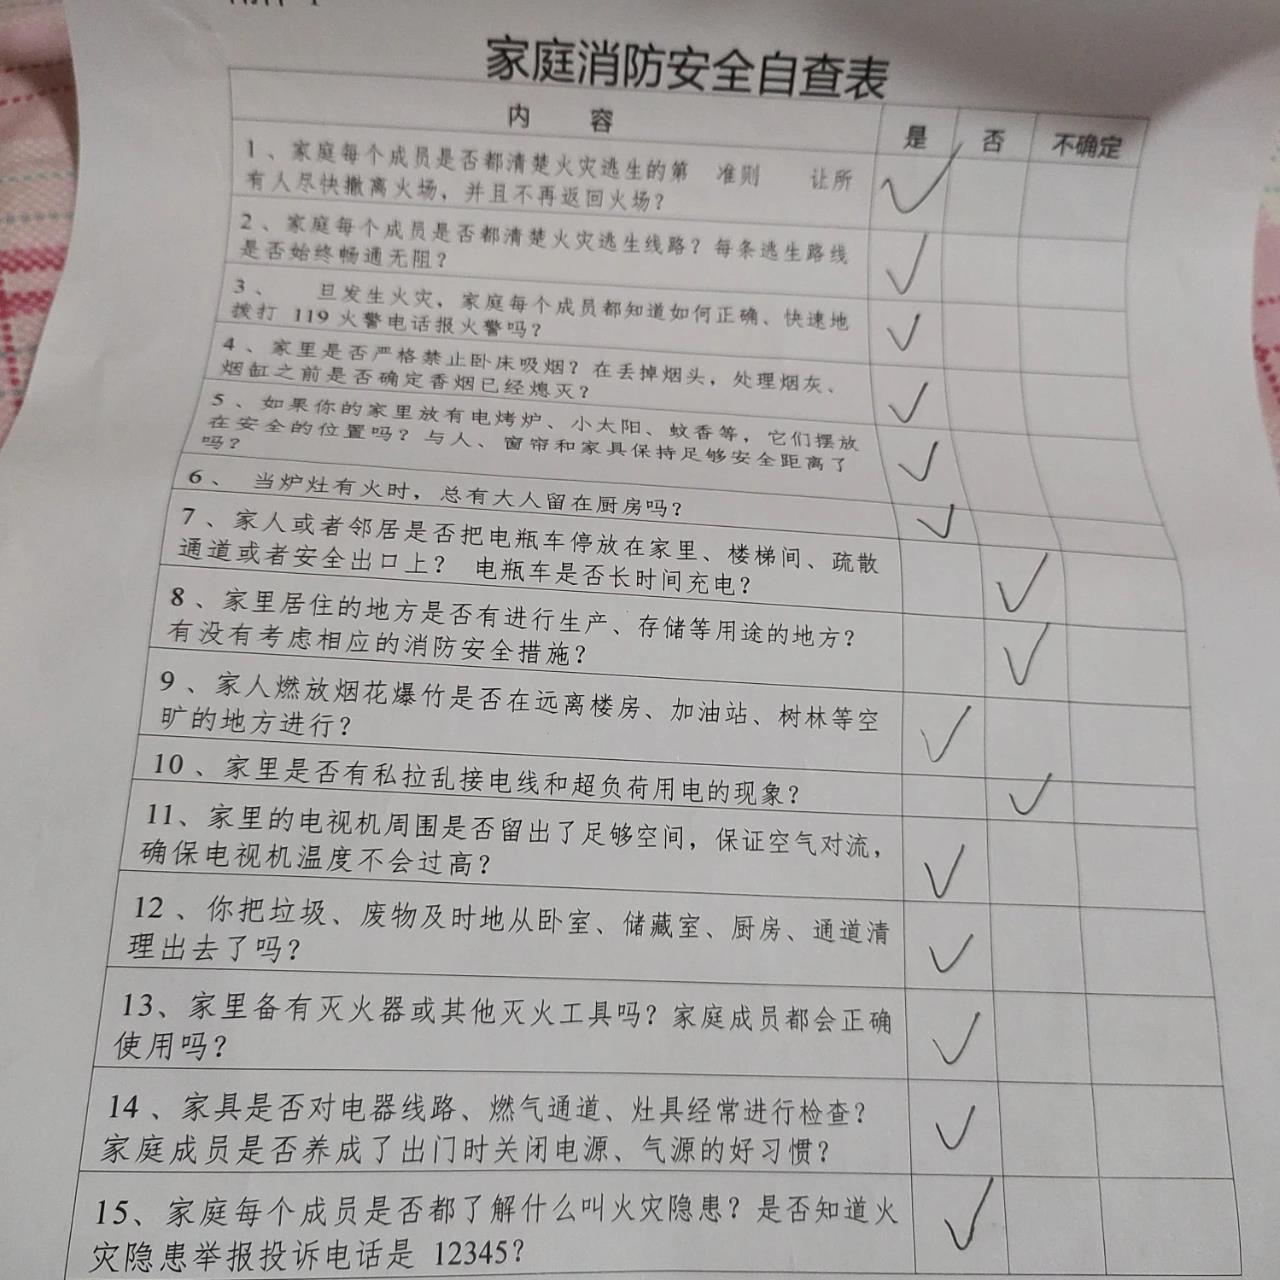 家庭消防安全自查表
内 容 是 否 不确定
1、家庭每个成员是否都清楚火灾逃生的第 准则 让所
有人尽快撤离火场，并且不再返回火场？
2、家庭每个成员是否都清楚火灾逃生线路？每条逃生路线
是否始终畅通无阻？
3、 旦发生火灾，家庭每个成员都知道如何正确、快速地
拨打 119 火警电话报火警吗？
4、家里是否严格禁止卧床吸烟？在丢掉烟头，处理烟灰、
烟缸之前是否确定香烟已经熄灭？
5、如果你的家里放有电烤炉、小太阳、蚊香等，它们摆放
在安全的位置吗？与人、窗帘和家具保持足够安全距离了
吗？
6、 当炉灶有火时，总有大人留在厨房吗？
7、家人或者邻居是否把电瓶车停放在家里、楼梯间、疏散
通道或者安全出口上？ 电瓶车是否长时间充电？
8、家里居住的地方是否有进行生产、存储等用途的地方？
有没有考虑相应的消防安全措施？
9、家人燃放烟花爆竹是否在远离楼房、加油站、树林等空
旷的地方进行？
10、家里是否有私拉乱接电线和超负荷用电的现象？
11、家里的电视机周围是否留出了足够空间，保证空气对流，
确保电视机温度不会过高？
12、你把垃圾、废物及时地从卧室、储藏室、厨房、通道清
理出去了吗？
13、家里备有灭火器或其他灭火工具吗？家庭成员都会正确
使用吗？
14、家具是否对电器线路、燃气通道、灶具经常进行检查？
家庭成员是否养成了出门时关闭电源、气源的好习惯？
15、家庭每个成员是否都了解什么叫火灾隐患？是否知道火
灾隐患举报投诉电话是 12345？